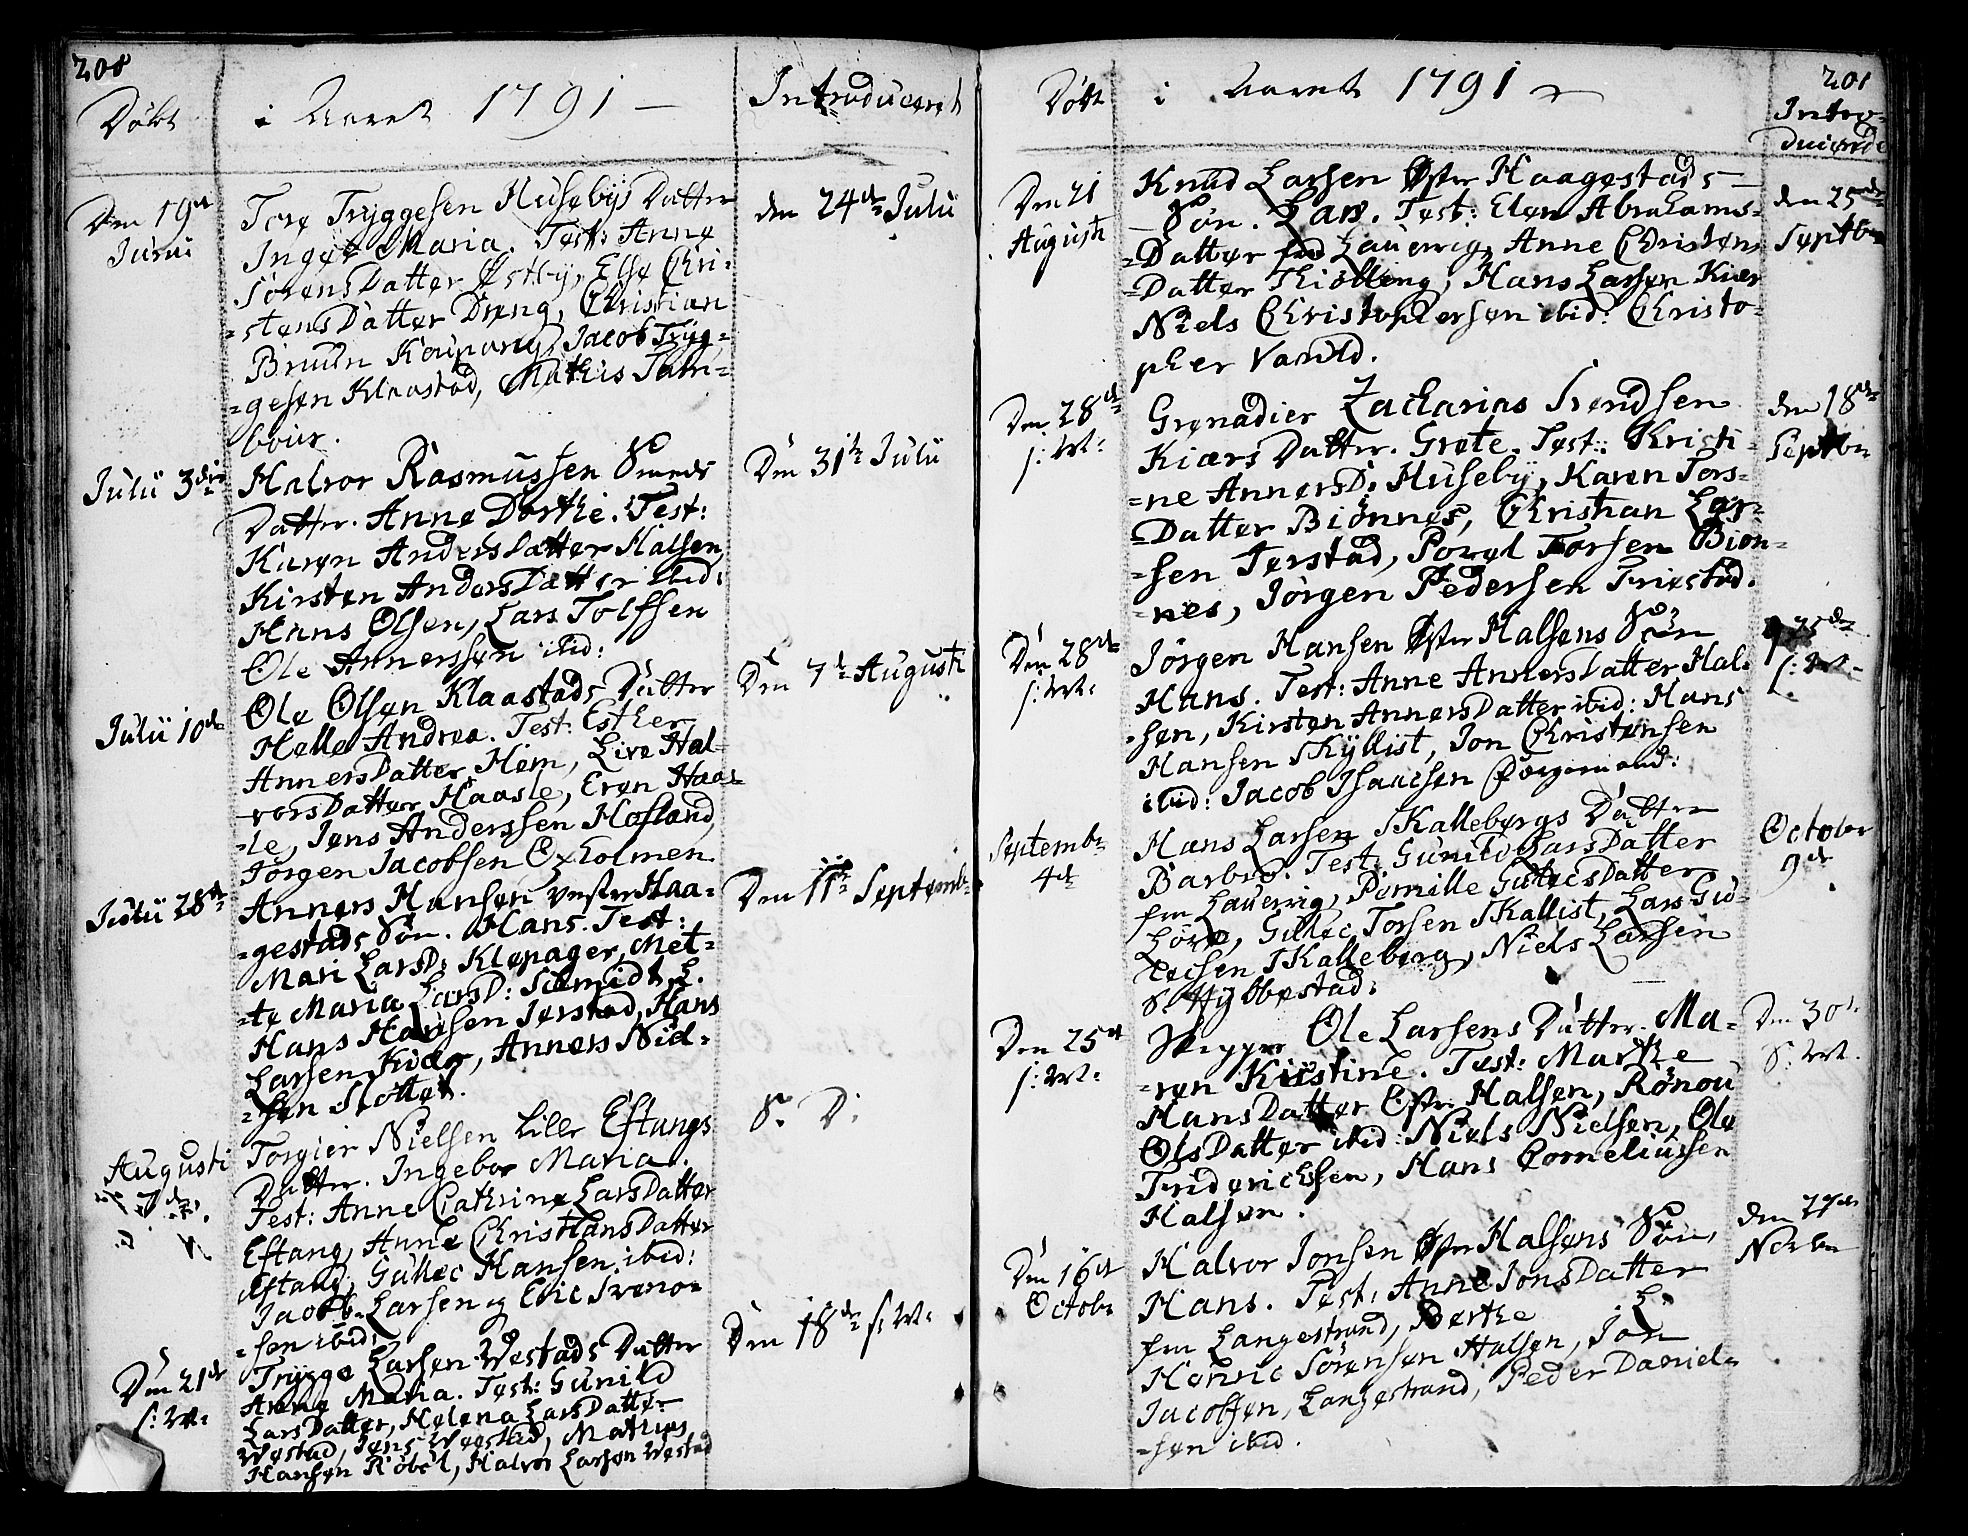 208
Døbt
i Aaret 1791 —
Introduceret
Den 19de
Junii
Tore Tryggesen Husebys Datter
Inger Maria. Test: Anne
SörensDatter Østby, Else Chri-
=stensDatter Dreng, Christian
Bruun Kaupang, Jacob Tryg-
=gesen Klaastad, Mathis
den 24de Julii
Julii 3die
Halvor Rasmussen Smeds
Datter. Anne Dorthe. Test:
Karen AndersDatter Halsen,
Kirsten AndersDatter ibid:
Hans Olsen, Lars Tolfsen
Ole Annerssen ibid:
Den 31te Julii
Julii 10de
Ole Olsen Klaastads Datter
Helle Andrea. Test: Esther
AnnersDatter Hem, Live Hal-
vorsDatter Haasle, Even Haas-
=le, Jens Anderssen Hofland,
Jørgen Jacobsen Oxholmen
Den 7de Augusti
Julii 28de
Anners Hansen Vester Haa-
=gestads Søn. Hans. Test:
Mari LarsD: Klepager, Met-
=te Maria LarsD: Schmidt L.
Hans Hansen Jerstad, Hans
Larsen Kiær, Anners Niel-
=sen Slottet.
Den 11te Septemb:
Augusti
7de
Torgier Nielsen Lille Eftangs
Datter. Ingebor Maria.
Test: Anne Cathrine LarsDatter
Eftang, Anne ChristiansDatter
Eftang, Gullec Hansen ibid:
Jacob Larsen og Eric Iveno-
=sen ibid:
S. D:
Den 21de
s: M:
Trygge Larsen Westads Datter
Anne Maria. Test: Gunild
LarsDatter, Helena LarsDatter
Westad, Jens Westad, Mathias
Hansen Røbel, Halvor Larsen Westad
Den 18de s: M:
201
Døbt
i Aaret 1791
Intro-
ducerede
Den 21
Augusti
Knud Larsen Øster Haagestads
Søn. Lars. Test: Elen Abrahams-
=Datter fra Lauervig, Anne Christens
=Datter Thiølling, Hans Larsen Kiær
Niels Christophersen ibid: Christo-
pher Varuld.
den 25de
Septbr
Den 28de
s: M:
Grenadier Zacharias Svendsen
Kiærs Datter. Grete. Test: Kristi-
=ne AnnersD: Huseby, Karen Tors-
=Datter Biönnes, Christian Lar-
=sen Jerstad, Povel Torsen Biön-
=nes, Jörgen Pedersen Triestad.
den 18de
Septbr
Den 28de
s: M:
Jörgen Hansen Øster Halsens Søn
Hans. Test: Anne AnnersDatter Hal-
=sen, Kirsten AnnersDatter ibid: Hans
Hansen Skyllist, Jon Christensen
ibid: Jacob Isaacsen Borgermand:
25de
s: M:
Septembr
4de
Hans Larsen Skallebergs Datter
Barbro. Test: Gunild LarsDatter
fra Lauervig, Pernille GullecsDatter
Gullec Torsen Skallist, Lars Gul-
lecsen Skalleberg, Niels Larsen
S. Hybbestad:
October
9de
Den 25de
s: M:
Skipper Ole Larsens Datter. Ma-
=ren Kirstine. Test: Marthe
HansDatter Østr. Halsen, Rönou
OlsDatter ibid: Niels Nielsen, Ole
Friderichsen, Hans Corneliussen
Halsen.
Den 30te
S: M.
Den 16de
Octobr
Halvor Jonsen Øster Halsens Søn,
Hans. Test: Anne JonsDatter
fra Langestrand, Berthe L.
Henric Sörensen Halsen, Jon
Jacobsen, Langestrand, Peder Daniel-
=sen ibid.
den 27de
Novbr